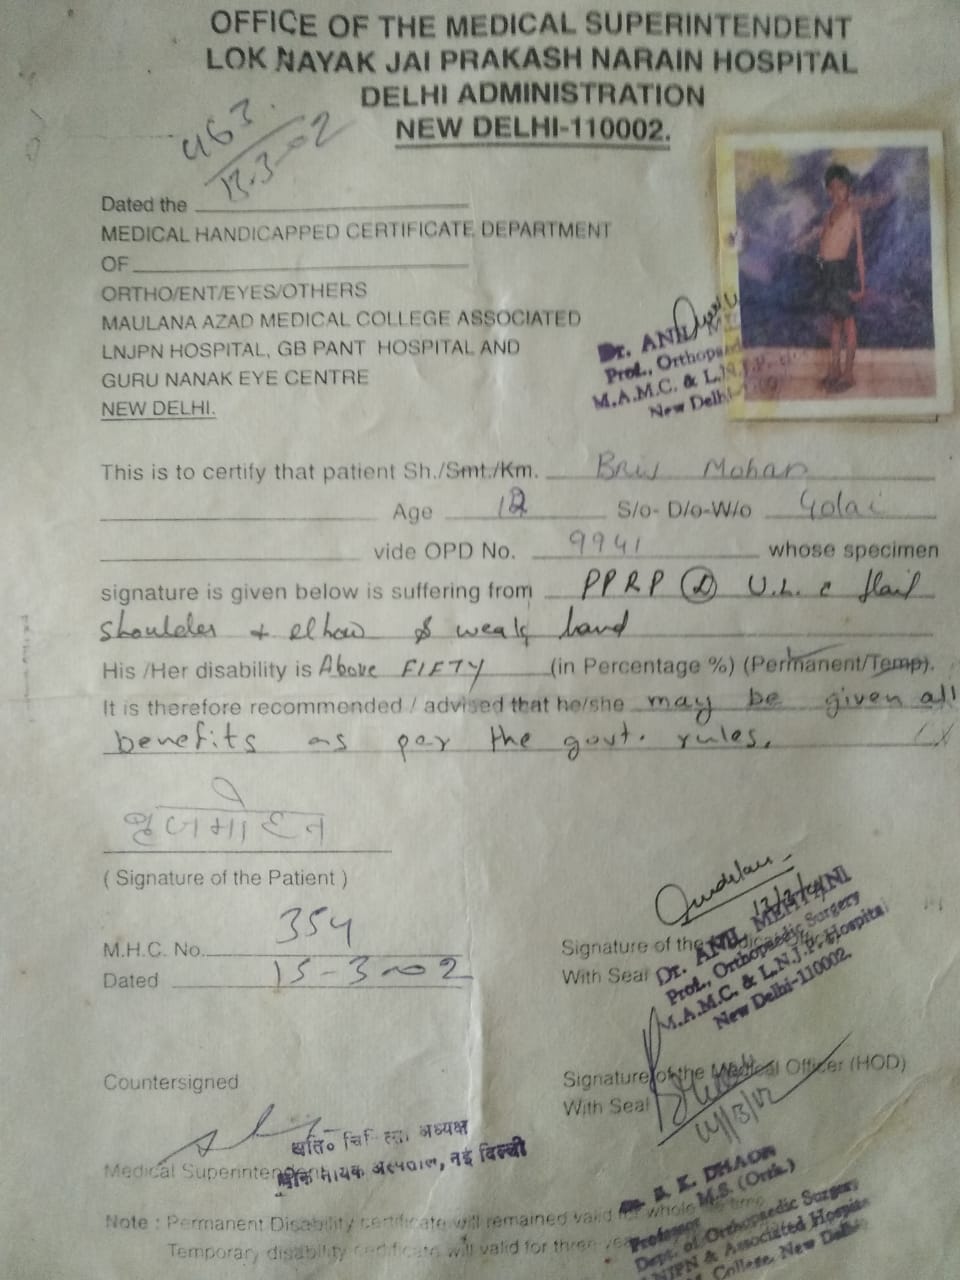 OFFICE OF THE MEDICAL SUPERINTENDENT
LOK NAYAK JAI PRAKASH NARAIN HOSPITAL
DELHI ADMINISTRATION
NEW DELHI-110002.
463
13-3-02
Dated the
MEDICAL HANDICAPPED CERTIFICATE DEPARTMENT
OF
ORTHO/ENT/EYES/OTHERS
MAULANA AZAD MEDICAL COLLEGE ASSOCIATED
LNJPN HOSPITAL, GB PANT HOSPITAL AND
GURU NANAK EYE CENTRE
NEW DELHI.
Dr. ANIL
Prof., Orthopaed
M.A.M.C. & L.N.J.P.
New Delhi-
This is to certify that patient Sh./Smt./Km. Brij Mohan
Age 12 S/o- D/o-W/o Golai
vide OPD No. 9941 whose specimen
signature is given below is suffering from PPRP U.L. c flail
shoulder + elbow & weak hand
His /Her disability is Above FIFTY (in Percentage %) (Permanent/Temp).
It is therefore recommended / advised that he/she may be given all
benefits as per the govt. rules.
बृजमोहन
( Signature of the Patient )
M.H.C. No. 354
Dated 15-3-02
Signature of the
With Seal
Dr. ANIL MEHTANI
Prof., Orthopaedic Surgery
M.A.M.C. & L.N.J.P. Hospital
New Delhi-110002.
Countersigned
Signature of the Medical Officer (HOD)
With Seal
अति० चिकित्सा अध्यक्ष
Medical Superintendent
लोक नायक अस्पताल, नई दिल्ली
S. K. DHAON
M.S. (Orth.)
Professor
Dept. of Orthopaedic Surgery
LNJPN & Associated Hospital
College, New Delhi
Note : Permanent Disability certificate will remained valid for whole life time
Temporary disability certificate will valid for three